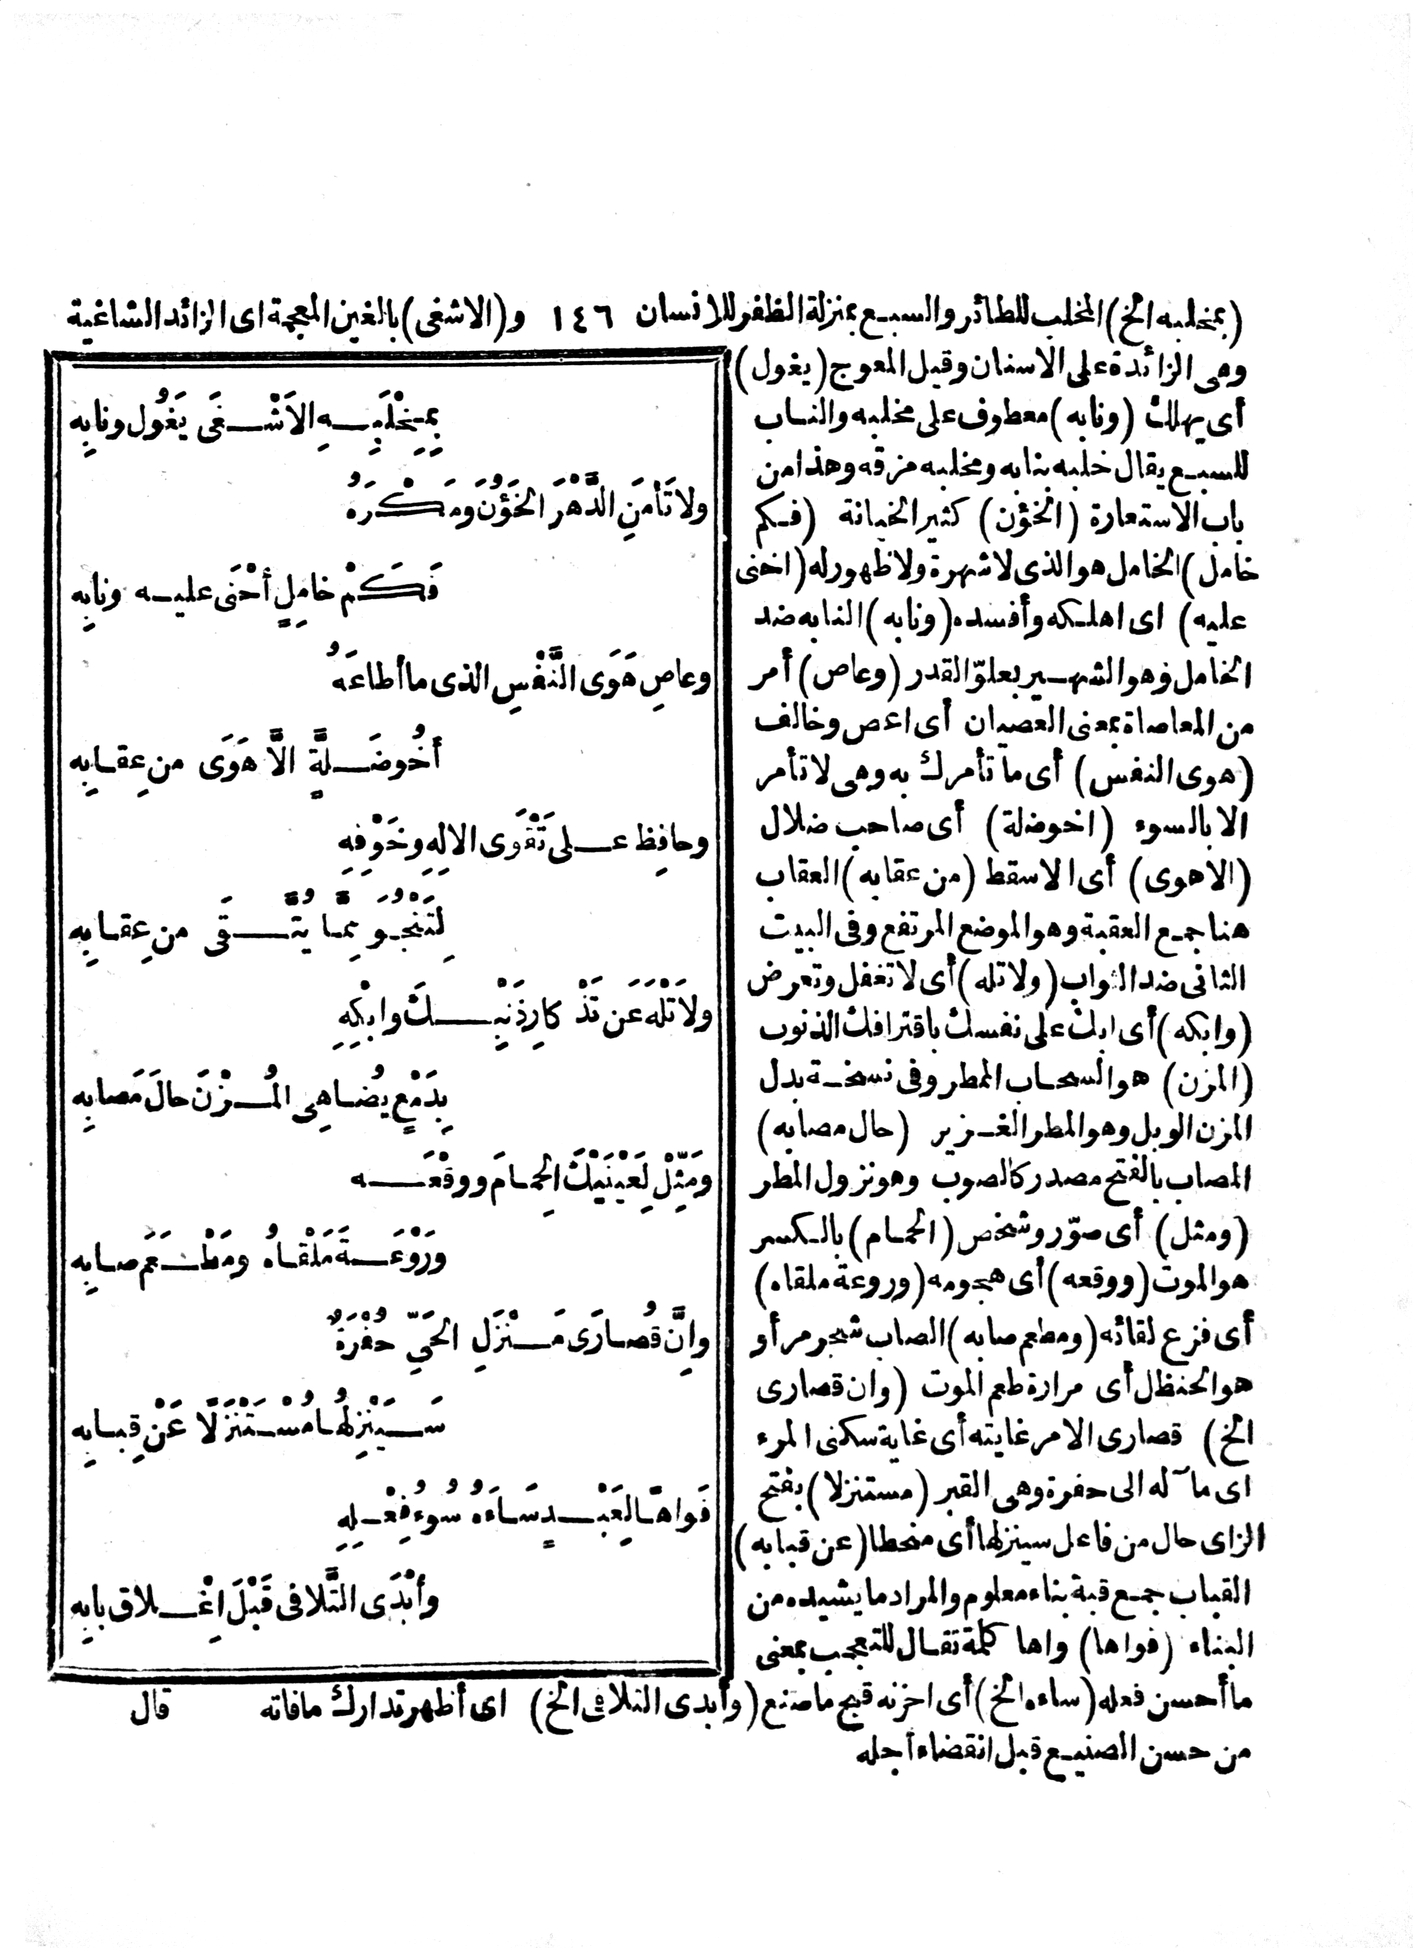 (بمخلبه الخ) المخلب للطائر والسبع بمنزلة الظفر للانسان ١٤٦ و(الاشغى) بالغين المعجمة اى الزائد الشاغية
وهى الزائدة على الاسنان وقيل المعوج (يغول)
أى يهلك (ونابه) معطوف على مخلبه والناب
للسبع يقال خلبه بنابه ومخلبه مزقه وهذا من
باب الاستعارة (الخؤن) كثير الخيانة (فكم
خامل) الخامل هو الذى لا شهرة ولا ظهور له (اخنى
عليه) اى اهلكه وأفسده (ونابه) النابه ضد
الخامل وهو الشهير بعلوّ القدر (وعاص) أمر
من المعاصاة بمعنى العصيان أى اعص وخالف
(هوى النفس) أى ما تأمرك به وهى لا تأمر
الا بالسوء (اخوضلة) أى صاحب ضلال
(الاهوى) أى الا سقط (من عقابه) العقاب
هنا جمع العقبة وهو الموضع المرتفع وفى البيت
الثانى ضد الثواب (ولا تله) أى لا تغفل وتعرض
(وابكه) أى ابك على نفسك باقترافك الذنوب
(المزن) هو السحاب الممطر وفى نسخة بدل
المزن الوبل وهو المطر الغزير (حال مصابه)
المصاب بالفتح مصدر كالصوب وهو نزول المطر
(ومثل) أى صوّر وشخص (الحمام) بالكسر
هو الموت (ووقعه) أى هجومه (وروعة ملقاه)
أى فزع لقائه (ومطعم صابه) الصاب شجر مر أو
هو الحنظل أى مرارة طعم الموت (وان قصارى
الخ) قصارى الامر غايته أى غاية سكنى المرء
اى مآله الى حفرة وهى القبر (مستنزلا) بفتح
الزاى حال من فاعل سينزلها أى منحطا (عن قبابه)
القباب جمع قبة بناء معلوم والمراد ما يشيده من
البناء (فواها) واها كلمة تقال للتعجب بمعنى
ما أحسن فعله (ساءه الخ) أى احزنه قبح ما صنع (وأبدى التلافى الخ) اى أظهر تدارك ما فاته
من حسن الصنيع قبل انقضاء أجله
بِمِخْلَبِهِ الاَشْغَى يَغُول ونابِه
ولا تَأمَنِ الدَّهْرَ الخَؤُنَ ومَكْرَهُ
فَكَمْ خامِلٍ أخْنَى عليه ونابِه
وعاصِ هَوَى النَّفْسِ الذى ما أطاعَهُ
أخُو ضَلةٍ الاَّ هَوَى من عِقابِه
وحافِظ على تَقْوَى الاِلهِ وخَوْفِهِ
لِتَنْجُوَ مِمَّا يُتَّقَى من عِقابِه
ولا تَلْهَ عَن تَذْكارِ ذَنْبِكَ وابْكِهِ
بِدَمْعٍ يُضاهِى المُزْنَ حالَ مَصابِه
ومَثِّلْ لِعَيْنَيْكَ الحِمامَ ووقْعَه
ورَوْعَةَ مَلْقاهُ ومَطْعَمَ صابِه
وإنَّ قُصارَى مَنْزَلِ الحَيِّ حُفْرَةٌ
سَيَنْزِلُها مُسْتَنْزَلًا عَنْ قِبابِه
فَواهًا لِعَبْدٍ سَاءَهُ سُوءُ فِعْلِهِ
وأبْدَى التَّلافى قَبْلَ اِغْلاق بابِه
قال